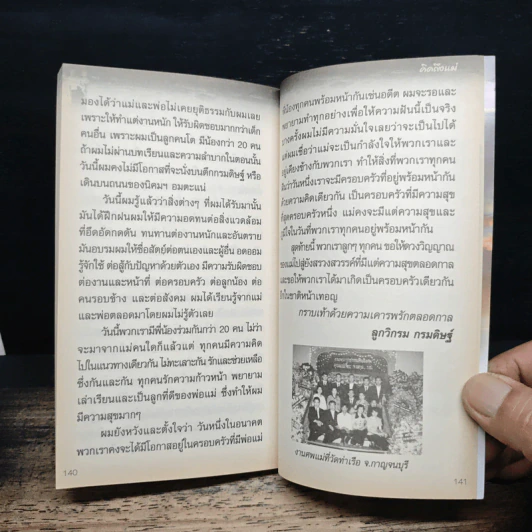 มองได้ว่าแม่และพ่อไม่เคยยุติธรรมกับผมเลย
เพราะให้ทำแต่งานหนัก ให้รับผิดชอบมากกว่าเด็ก
คนอื่น เพราะผมเป็นลูกคนโต มีน้องกว่า 20 คน
ถ้าผมไม่ผ่านบทเรียนและความลำบากในตอนนั้น
วันนี้ผมคงไม่มีโอกาสที่จะนั่งบนตึกกรมดิษฐ์ หรือ
เดินบนถนนของนิคมฯ อมตะแน่
วันนี้ผมรู้แล้วว่าสิ่งต่างๆ ที่ผมได้รับมานั้น
มันได้ฝึกฝนผมให้มีความอดทนต่อสิ่งแวดล้อม
ที่อึดอัดกดดัน ทนทานต่องานหนักและอันตราย
มันอบรมผมให้ซื่อสัตย์ต่อตนเองและผู้อื่น อดออม
รู้จักใช้ ต่อสู้กับปัญหาด้วยตัวเอง มีความรับผิดชอบ
ต่องานและหน้าที่ ต่อครอบครัว ต่อลูกน้อง ต่อ
คนรอบข้าง และต่อสังคม ผมได้เรียนรู้จากแม่
และพ่อตลอดมาโดยผมไม่รู้ตัวเลย
วันนี้พวกเรามีพี่น้องร่วมกันกว่า 20 คน ไม่ว่า
จะมาจากแม่คนใดก็แล้วแต่ ทุกคนมีความคิด
ไปในแนวทางเดียวกัน ไม่ทะเลาะกัน รักและช่วยเหลือ
ซึ่งกันและกัน ทุกคนรักความก้าวหน้า พยายาม
เล่าเรียนและเป็นลูกที่ดีของพ่อแม่ ซึ่งทำให้ผม
มีความสุขมากๆ
ผมยังหวังและตั้งใจว่า วันหนึ่งในอนาคต
พวกเราคงจะได้มีโอกาสอยู่ในครอบครัวที่มีพ่อแม่
140
คิดถึงแม่
พี่น้องทุกคนพร้อมหน้ากันเช่นอดีต ผมจะรอและ
พยายามทำทุกอย่างเพื่อให้ความฝันนี้เป็นจริง
บางครั้งผมไม่มีความมั่นใจเลยว่าจะเป็นไปได้
แต่ผมเชื่อว่าแม่จะเป็นกำลังใจให้พวกเราและ
อยู่เคียงข้างกับพวกเรา ทำให้สิ่งที่พวกเราทุกคน
ฝันว่าวันหนึ่งเราจะมีครอบครัวที่อยู่พร้อมหน้ากัน
ด้วยความคิดเดียวกัน เป็นครอบครัวที่มีความสุข
ที่สุดครอบครัวหนึ่ง แม่คงจะมีแต่ความสุขและ
ภูมิใจในวันที่พวกเราทุกคนอยู่พร้อมหน้ากัน
สุดท้ายนี้ พวกเราลูกๆ ทุกคน ขอให้ดวงวิญญาณ
ของแม่ไปสู่ยังสรวงสวรรค์ที่มีความสุขตลอดกาล
และขอให้พวกเราได้มาเกิดเป็นครอบครัวเดียวกัน
อีกในชาติหน้าเทอญ
กราบเท้าด้วยความเคารพรักตลอดกาล
ลูกวิกรม กรมดิษฐ์
งานศพแม่ที่วัดท่าเรือ จ.กาญจนบุรี
141